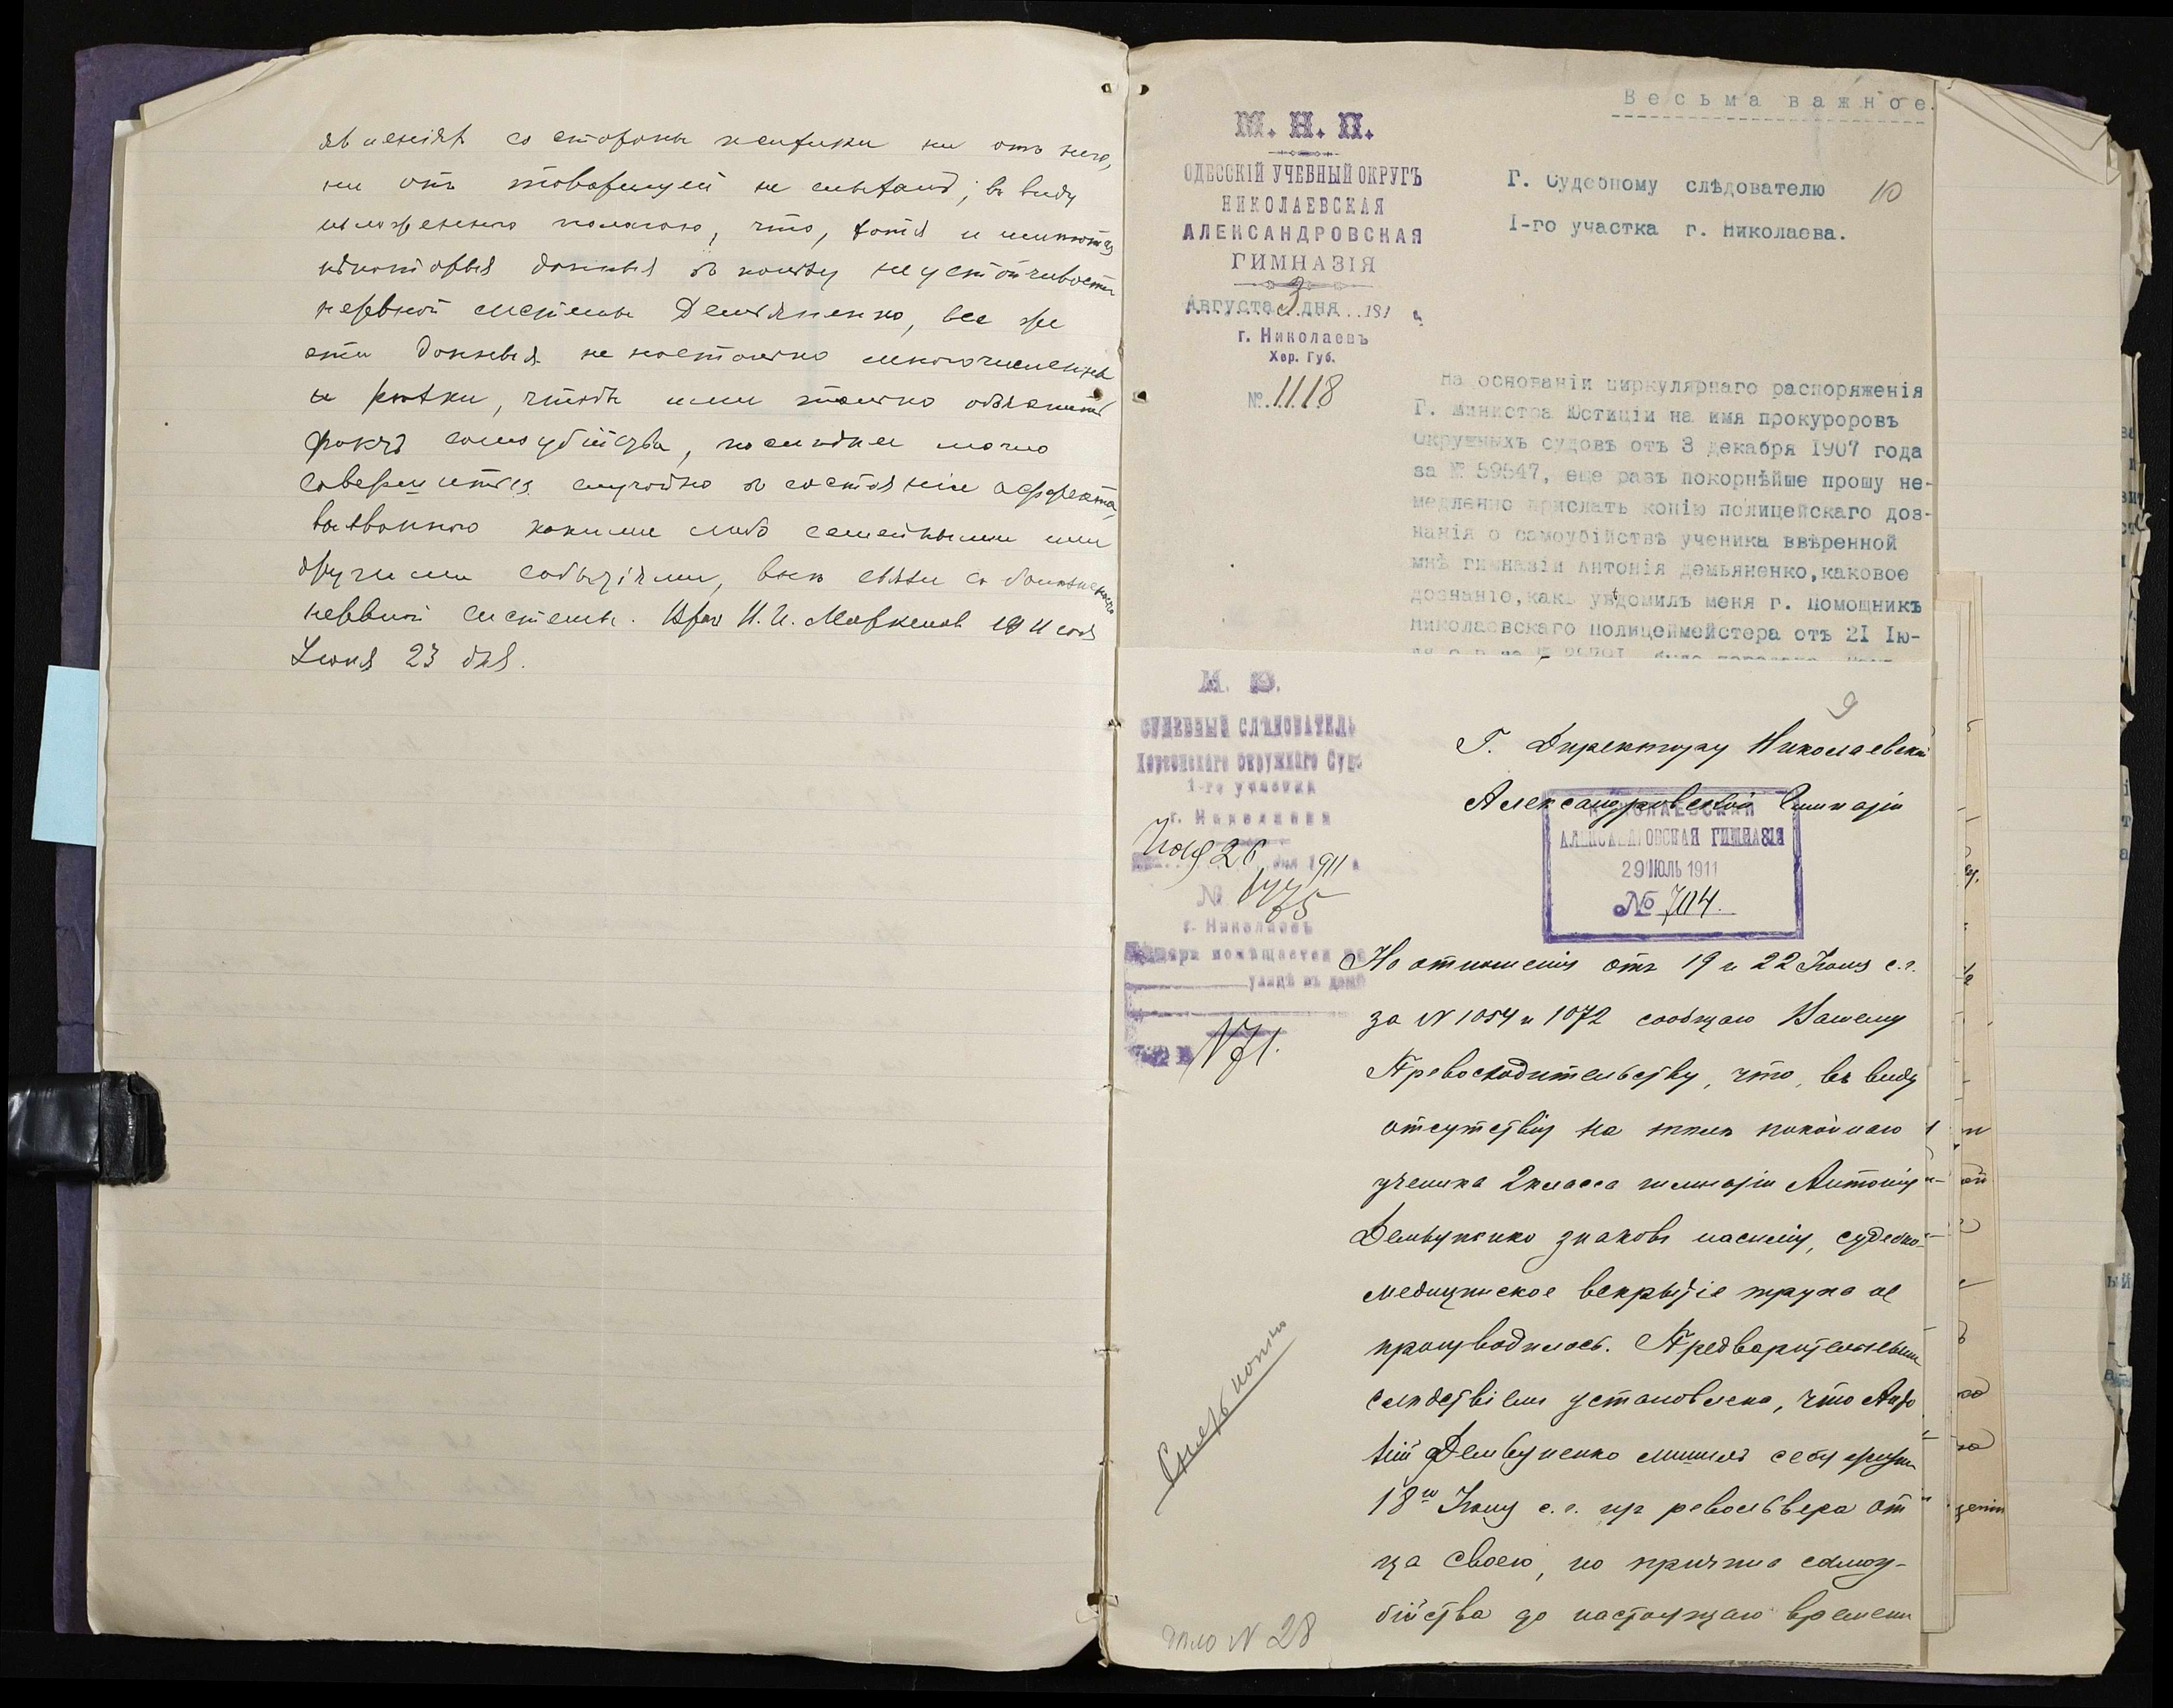 явленія со стороны психики ни отъ него,
ни отъ товарищей не слыхалъ; въ виду
изложеннаго полагаю, что, хотя и имѣются
нѣкоторыя данныя въ пользу неустойчивости
нервной системы Демьяненко, все же
эти данныя не настолько многочисленны
и рѣзки, чтобы ими только объяснить
фактъ самоубійства, послѣднее могло
совершиться случайно въ состояніи аффекта,
вызваннаго какими либо семейными или
другими событіями, внѣ связи съ болѣзненностью
нервной системы. Врач Н. И. 1911 года
Іюня 23 дня.
Весьма важное.
М. Н. П.
ОДЕССКІЙ УЧЕБНЫЙ ОКРУГЪ
НИКОЛАЕВСКАЯ
АЛЕКСАНДРОВСКАЯ
ГИМНАЗІЯ
Августа 3 дня 191
г. Николаевъ
Хер. Губ.
№ 1118
Г. Судебному слѣдователю
10
I-го участка г. Николаева.
На основаніи циркулярнаго распоряженія
Г. Министра Юстиціи на имя прокуроровъ
Окружныхъ судовъ отъ 3 декабря 1907 года
за № 59547, еще разъ покорнѣйше прошу не-
медленно прислать копію полицейскаго доз-
нанія о самоубійствѣ ученика ввѣренной
мнѣ гимназіи Антонія Демьяненко, каковое
дознаніе, какъ увѣдомилъ меня г. Помощникъ
Николаевскаго полицеймейстера отъ 2I Iю-
М. Ю.
СУДЕБНЫЙ СЛѢДОВАТЕЛЬ
Херсонскаго Окружнаго Суда
1-го участка
г. Николаева
Іюля 26 дня 1911
№ 1775
г. Николаевъ
Камера помѣщается
улицѣ въ домѣ
9
Г. Директору Николаевской
Александровской Гимназіи
НИКОЛАЕВСКАЯ
АЛЕКСАНДРОВСКАЯ ГИМНАЗІЯ
29 ІЮЛЬ 1911
№ 704.
На отношенія отъ 19 и 22 Іюля с.г.
за N 1054 и 1072 сообщаю Вашему
Превосходительству, что, въ виду
отсутствія на тѣлѣ покойнаго
ученика 2 класса гимназіи Антонія
Демьяненко знаковъ насилія, судебно-
медицинское вскрытіе трупа не
производилось. Предварительнымъ
слѣдствіемъ установлено, что Анто
ній Демьяненко лишилъ себя жизни
18го Іюня с.г. изъ револьвера от
ца своего, но причина самоу-
бійства до настоящаго времени
Снять копію
Дѣло N 28